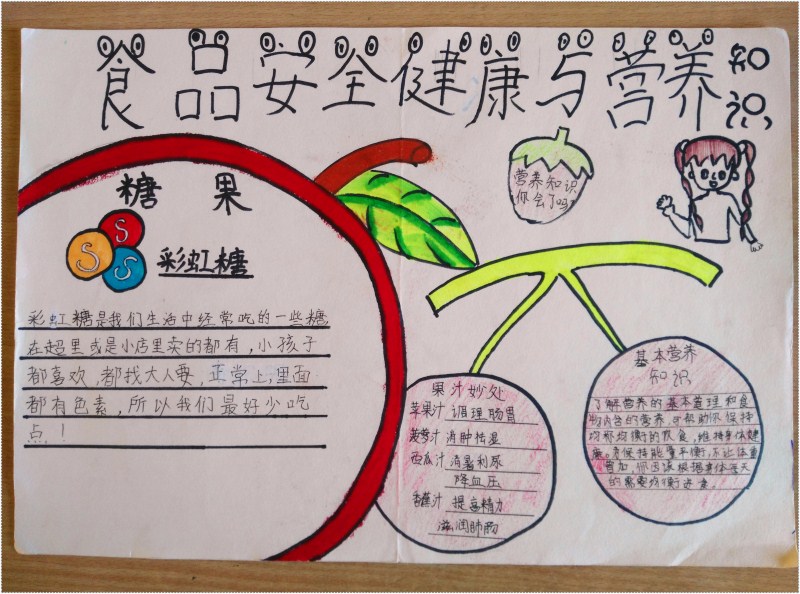 食品安全健康与营养知识
糖果
S
S
S
彩虹糖
彩虹糖是我们生活中经常吃的一些糖
在超里或是小店里卖的都有,小孩子
都喜欢,都找大人要,正常上,里面
都有色素,所以我们最好少吃
点!
营养知识
你会了吗
果汁妙处
苹果汁 调理肠胃
菠萝汁 消肿祛湿
西瓜汁 消暑利尿
降血压
香蕉汁 提高精力
滋润肺肠
基本营养
知识
了解营养的基本管理和食
物内含的营养,帮助你保持
均衡的饮食,维持身体健
康。为保持能量平衡,不让体重
增加,你应该根据身体每天
的需要均衡进食,